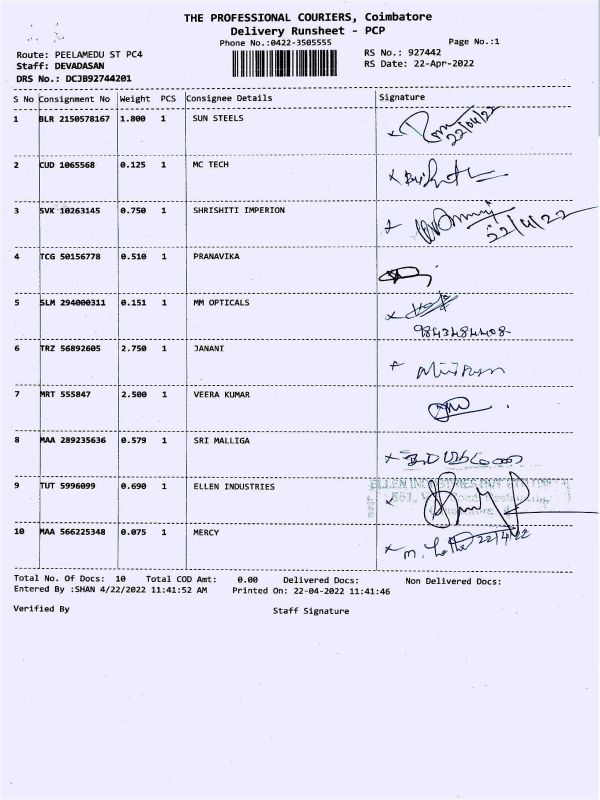 THE PROFESSIONAL COURIERS, Coimbatore
Delivery Runsheet - PCP
Phone No.:0422-3505555 Page No.:1
Route: PEELAMEDU ST PC4 RS No.: 927442
Staff: DEVADASAN RS Date: 22-Apr-2022
DRS No.: DCJB92744201
S No Consignment No Weight PCS Consignee Details Signature
1 BLR 2150578167 1.800 1 SUN STEELS
22/04/22
2 CUD 1065568 0.125 1 MC TECH
3 SVK 10263145 0.750 1 SHRISHITI IMPERION
22/4/22
4 TCG 50156778 0.510 1 PRANAVIKA
5 SLM 294000311 0.151 1 MM OPTICALS
6 TRZ 56892605 2.750 1 JANANI
7 MRT 555847 2.500 1 VEERA KUMAR
8 MAA 289235636 0.579 1 SRI MALLIGA
9 TUT 5996099 0.690 1 ELLEN INDUSTRIES
10 MAA 566225348 0.075 1 MERCY
22/4/22
Total No. Of Docs: 10 Total COD Amt: 0.00 Delivered Docs: Non Delivered Docs:
Entered By :SHAN 4/22/2022 11:41:52 AM Printed On: 22-04-2022 11:41:46
Verified By Staff Signature